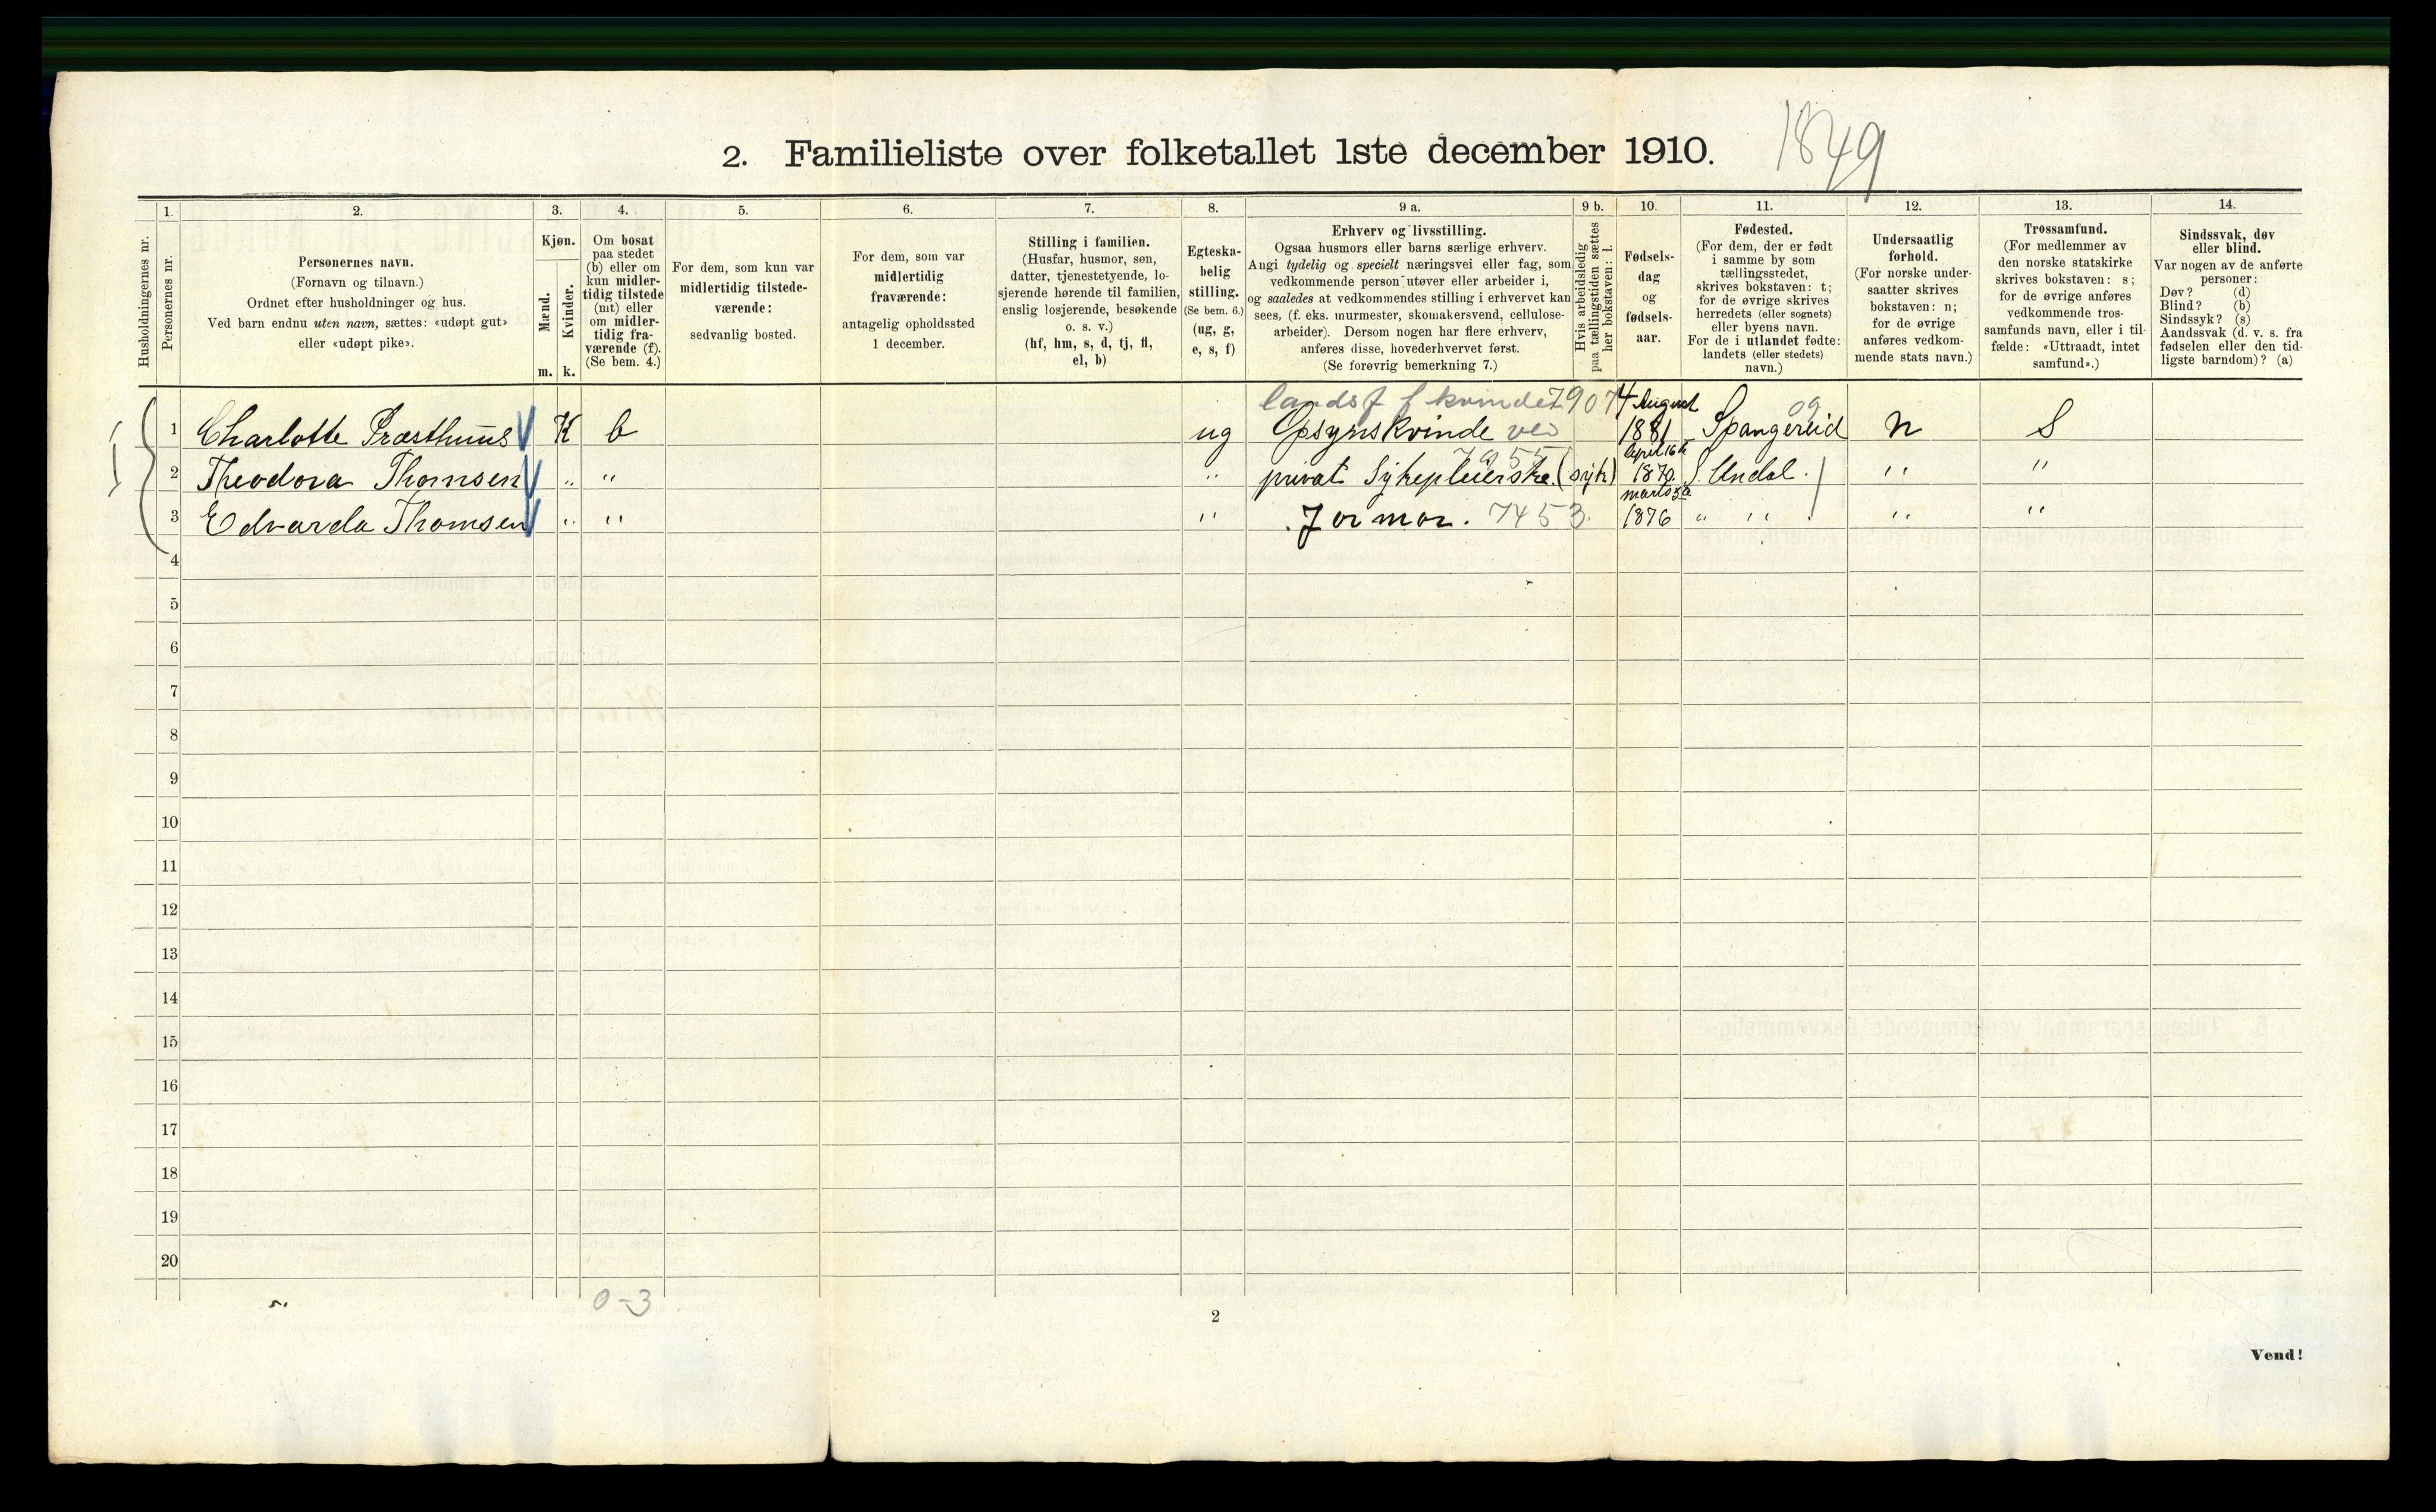 2. Familieliste over folketallet 1ste december 1910.
1849
Husholdningernes nr.
1. Personernes nr.
2.
Personernes navn.
(Fornavn og tilnavn.)
Ordnet efter husholdninger og hus.
Ved barn endnu uten navn, sættes: «udøpt gut»
eller «udøpt pike».
3.
Kjøn.
Mænd.
Kvinder.
m. k.
4.
Om bosat
paa stedet
(b) eller om
kun midler-
tidig tilstede
(mt) eller
om midler-
tidig fra-
værende (f).
(Se bem. 4.)
5.
For dem, som kun var
midlertidig tilstede-
værende:
sedvanlig bosted.
6.
For dem, som var
midlertidig
fraværende:
antagelig opholdssted
1 december.
7.
Stilling i familien.
(Husfar, husmor, søn,
datter, tjenestetyende, lo-
sjerende hørende til familien,
enslig losjerende, besøkende
o. s. v.)
(hf, hm, s, d, tj, fl,
el, b)
8.
Egteska-
belig
stilling.
(Se bem. 6.)
(ug, g,
e, s, f)
9 a.
Erhverv og livsstilling.
Ogsaa husmors eller barns særlige erhverv.
Angi tydelig og specielt næringsvei eller fag, som
vedkommende person utøver eller arbeider i,
og saaledes at vedkommendes stilling i erhvervet kan
sees, (f. eks. murmester, skomakersvend, cellulose-
arbeider). Dersom nogen har flere erhverv,
anføres disse, hovederhvervet først.
(Se forøvrig bemerkning 7.)
9 b.
Hvis arbeidsledig
paa tællingstiden sættes
her bokstaven: l.
10.
Fødsels-
dag
og
fødsels-
aar.
11.
Fødested.
(For dem, der er født
i samme by som
tællingsstedet,
skrives bokstaven: t;
for de øvrige skrives
herredets (eller sognets)
eller byens navn.
For de i utlandet fødte:
landets (eller stedets)
navn.)
12.
Undersaatlig
forhold.
(For norske under-
saatter skrives
bokstaven: n;
for de øvrige
anføres vedkom-
mende stats navn.)
13.
Trossamfund.
(For medlemmer av
den norske statskirke
skrives bokstaven: s;
for de øvrige anføres
vedkommende tros-
samfunds navn, eller i til-
fælde: «Uttraadt, intet
samfund».)
14.
Sindssvak, døv
eller blind.
Var nogen av de anførte
personer:
Døv? (d)
Blind? (b)
Sindssyk? (s)
Aandssvak (d. v. s. fra
fødselen eller den tid-
ligste barndom)? (a)
landsf f kvinder 7907 4 August 09
1 Charlotte Præsthuus K b ug Opsynskvinde ved 1881 Spangereid n S
7955 April 16
2 Theodora Thomsen " " " privat Sykepleierske. (syk) 1870. S. Undal. " "
marts 3
3 Edvarda Thomsen " " " Jormor. 7453. 1876 " " . " "
4
5
6
7
8
9
10
11
12
13
14
15
16
17
18
19
20
0-3
2
Vend!